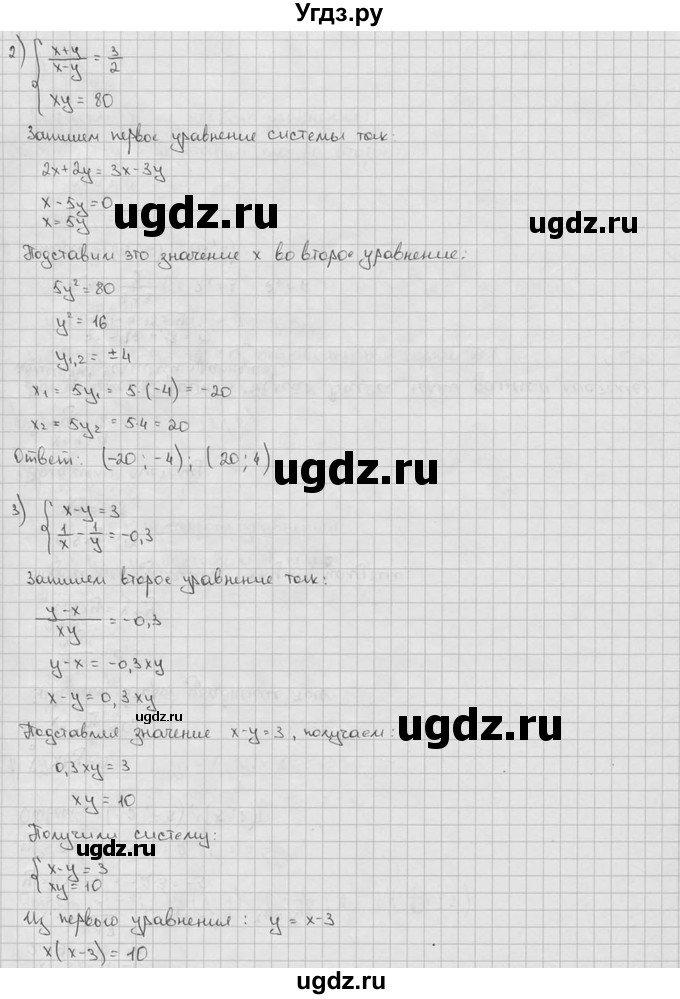 Угдз.ру
2) { (x+y)/(x-y) = 3/2
xy = 80
Запишем первое уравнение системы так:
2x+2y = 3x-3y
x - 5y = 0
x = 5y
ugdz.ru
Подставим это значение x во второе уравнение:
5y² = 80
y² = 16
y₁,₂ = ±4
x₁ = 5y₁ = 5·(-4) = -20
x₂ = 5y₂ = 5·4 = 20
Ответ: (-20; -4); (20; 4)
ugdz.ru
3) { x-y = 3
1/x - 1/y = -0,3
Запишем второе уравнение так:
(y-x)/(xy) = -0,3
y-x = -0,3xy
x-y = 0,3xy
ugdz.ru
Подставляя значение x-y=3, получаем:
ugdz.ru
0,3xy = 3
xy = 10
Получили систему:
ugdz.ru
{ x-y = 3
xy = 10
Из первого уравнения: y = x-3
x(x-3) = 10
ugdz.ru